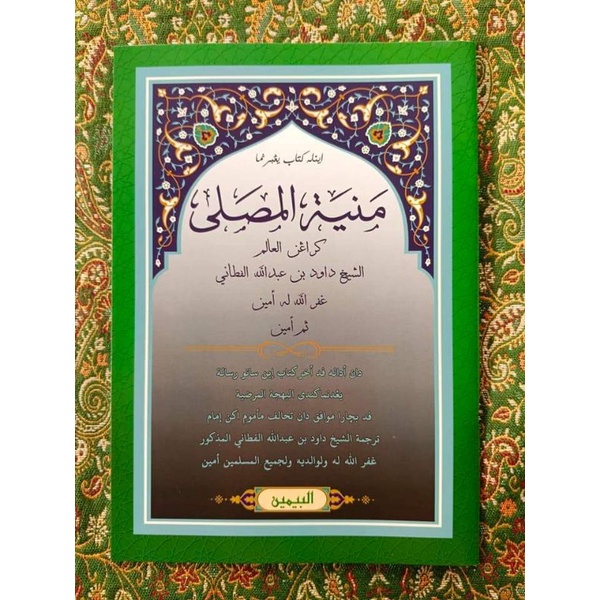 اينله كتاب يڠبرنما
منية المصلى
كراڠن العالم
الشيخ داود بن عبدالله الفطاني
غفر الله له أمين
ثم أمين
دان أداله قد أخر كتاب إين ساتو رسالة
يڠدنماكندي البهجة المرضية
قد بچارا موافق دان تخالف مأموم اكن إمام
ترجمة الشيخ داود بن عبدالله الفطاني المذكور
غفر الله له ولوالديه ولجميع المسلمين أمين
البيمين